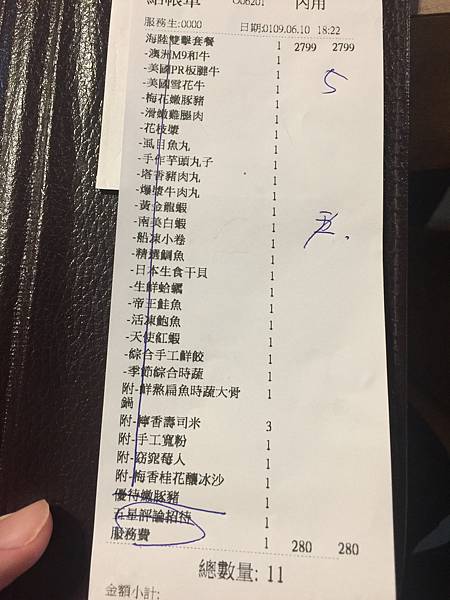 結帳單 O06201 內用
服務生:0000 日期:0109.06.10 18:22
海陸雙擊套餐 1 2799 2799
-澳洲M9和牛 1
-美國PR板腱牛 1
-美國雪花牛 1
-梅花嫩豚豬 1
-滑嫩雞腿肉 1
-花枝漿 1
-虱目魚丸 1
-手作芋頭丸子 1
-塔香豬肉丸 1
-爆漿牛肉丸 1
-黃金龍蝦 1
-南美白蝦 1
-船凍小卷 1
-精選鯛魚 1
-日本生食干貝 1
-生鮮蛤蠣 1
-帝王鮭魚 1
-活凍鮑魚 1
-天使紅蝦 1
-綜合手工鮮餃 1
-季節綜合時蔬 1
附-鮮熬扁魚時蔬大骨 1
鍋
附-檸香壽司米 3
附-手工寬粉 1
附-窈窕莓人 1
附-梅香桂花釀冰沙 1
優待嫩豚豬 1
五星評論招待 1
服務費 1 280 280
總數量: 11
金額小計:
5